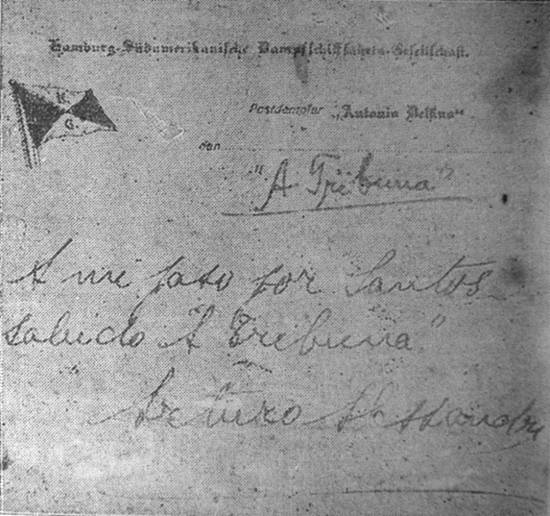 Hamburg-Südamerikanische Dampfschifffahrts-Gesellschaft.
H.
G.
Postdampfer „Antonio Delfino“
den
"A Tribuna"
A mi paso por Santos
saludo "A Tribuna"
Arturo Alessandri